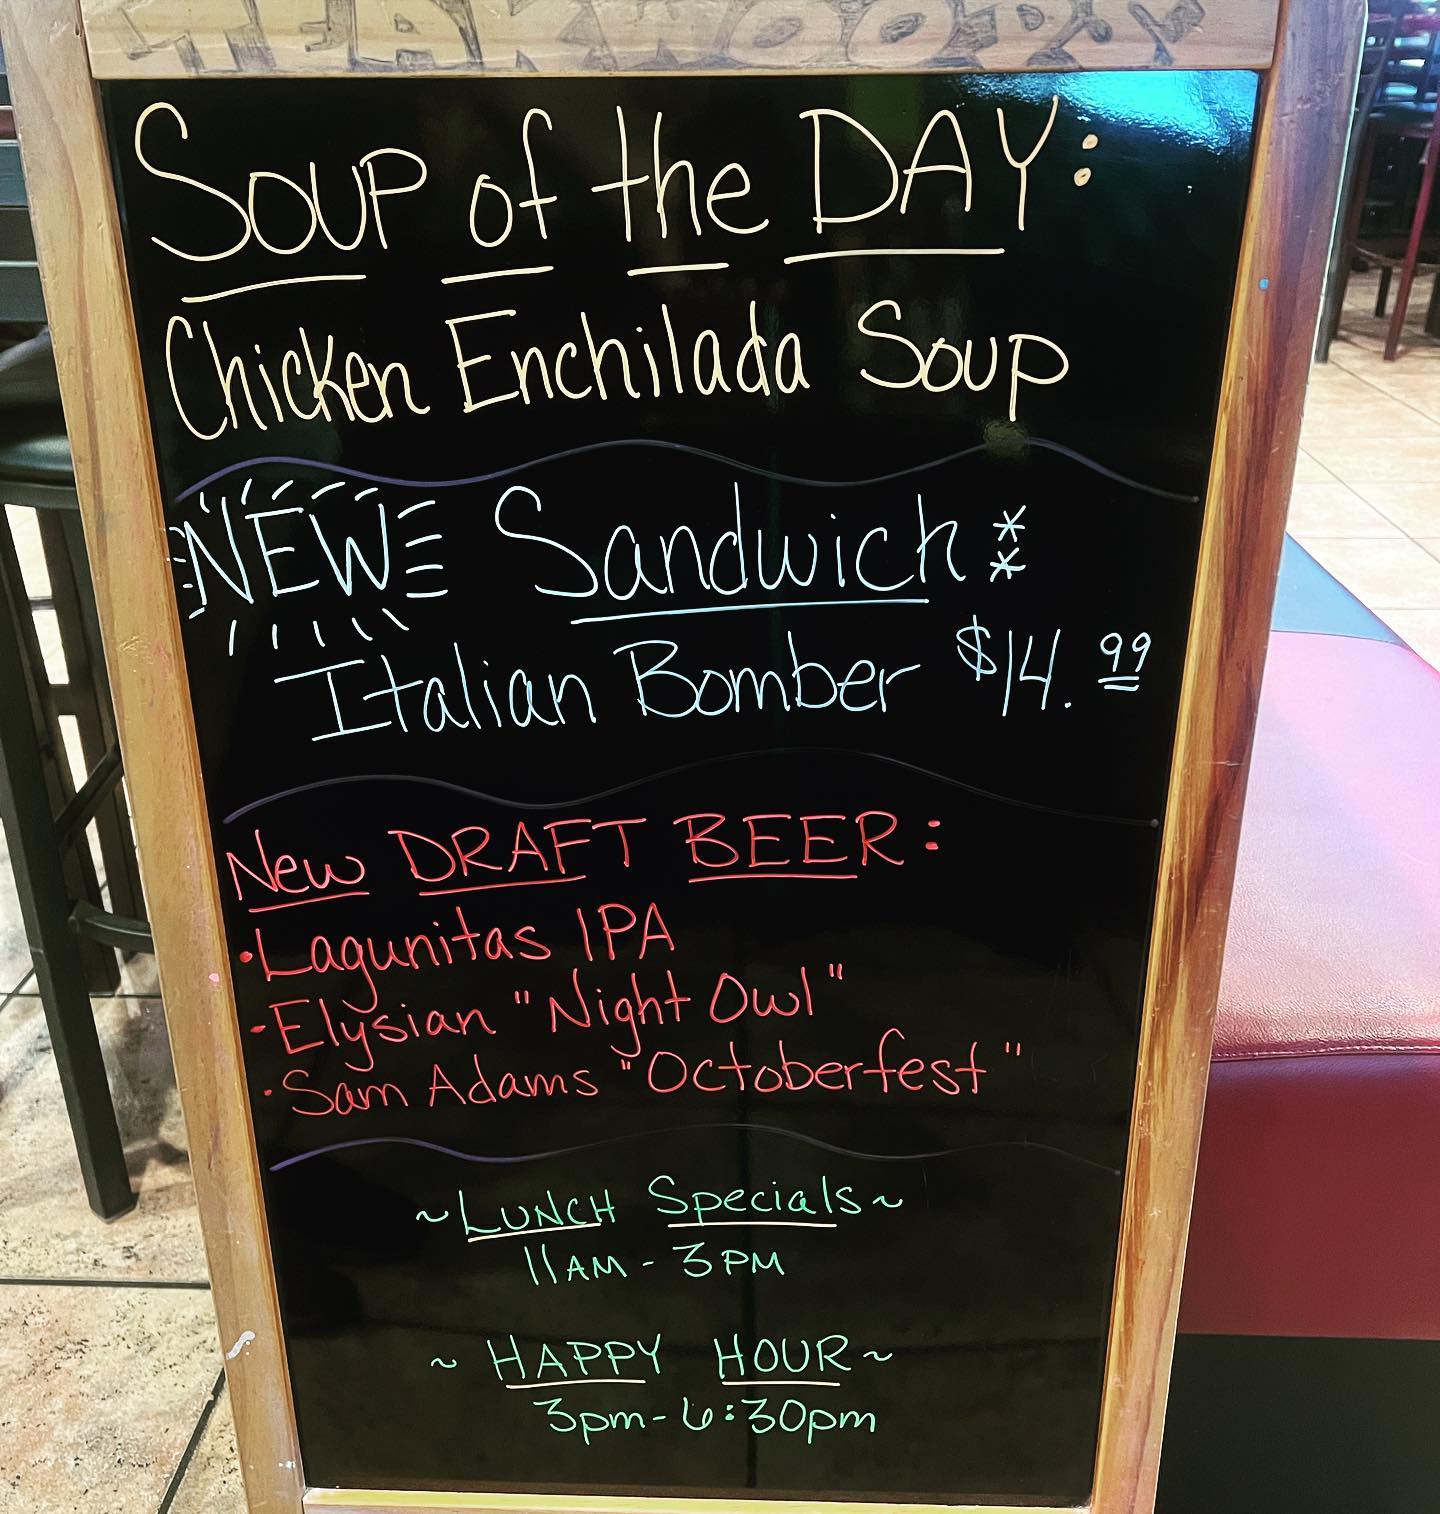 TEAKWOODS
SOUP of the DAY:
Chicken Enchilada Soup
NEW Sandwich **
Italian Bomber $14.99
New DRAFT BEER:
• Lagunitas IPA
• Elysian "Night Owl"
• Sam Adams "Octoberfest"
~ LUNCH Specials ~
11AM - 3PM
~ HAPPY HOUR ~
3pm - 6:30pm